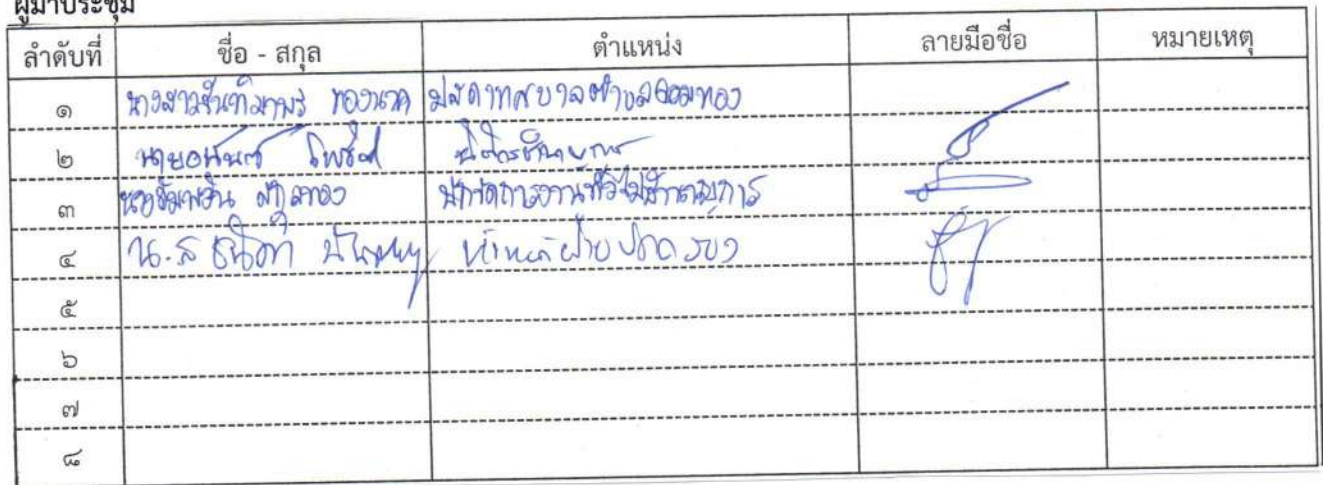 ผู้มาประชุม
ลำดับที่ ชื่อ - สกุล ตำแหน่ง ลายมือชื่อ หมายเหตุ
๑ นางสาวจันทิมาพร ทองนาค ปลัดเทศบาลตำบลจอมทอง
๒ นายอนันต์ นิติกรชำนาญการ
๓ นักจัดการงานทั่วไปชำนาญการ
๔ น.ส ธนิดา หัวหน้าฝ่ายปกครอง
๕
๖
๗
๘